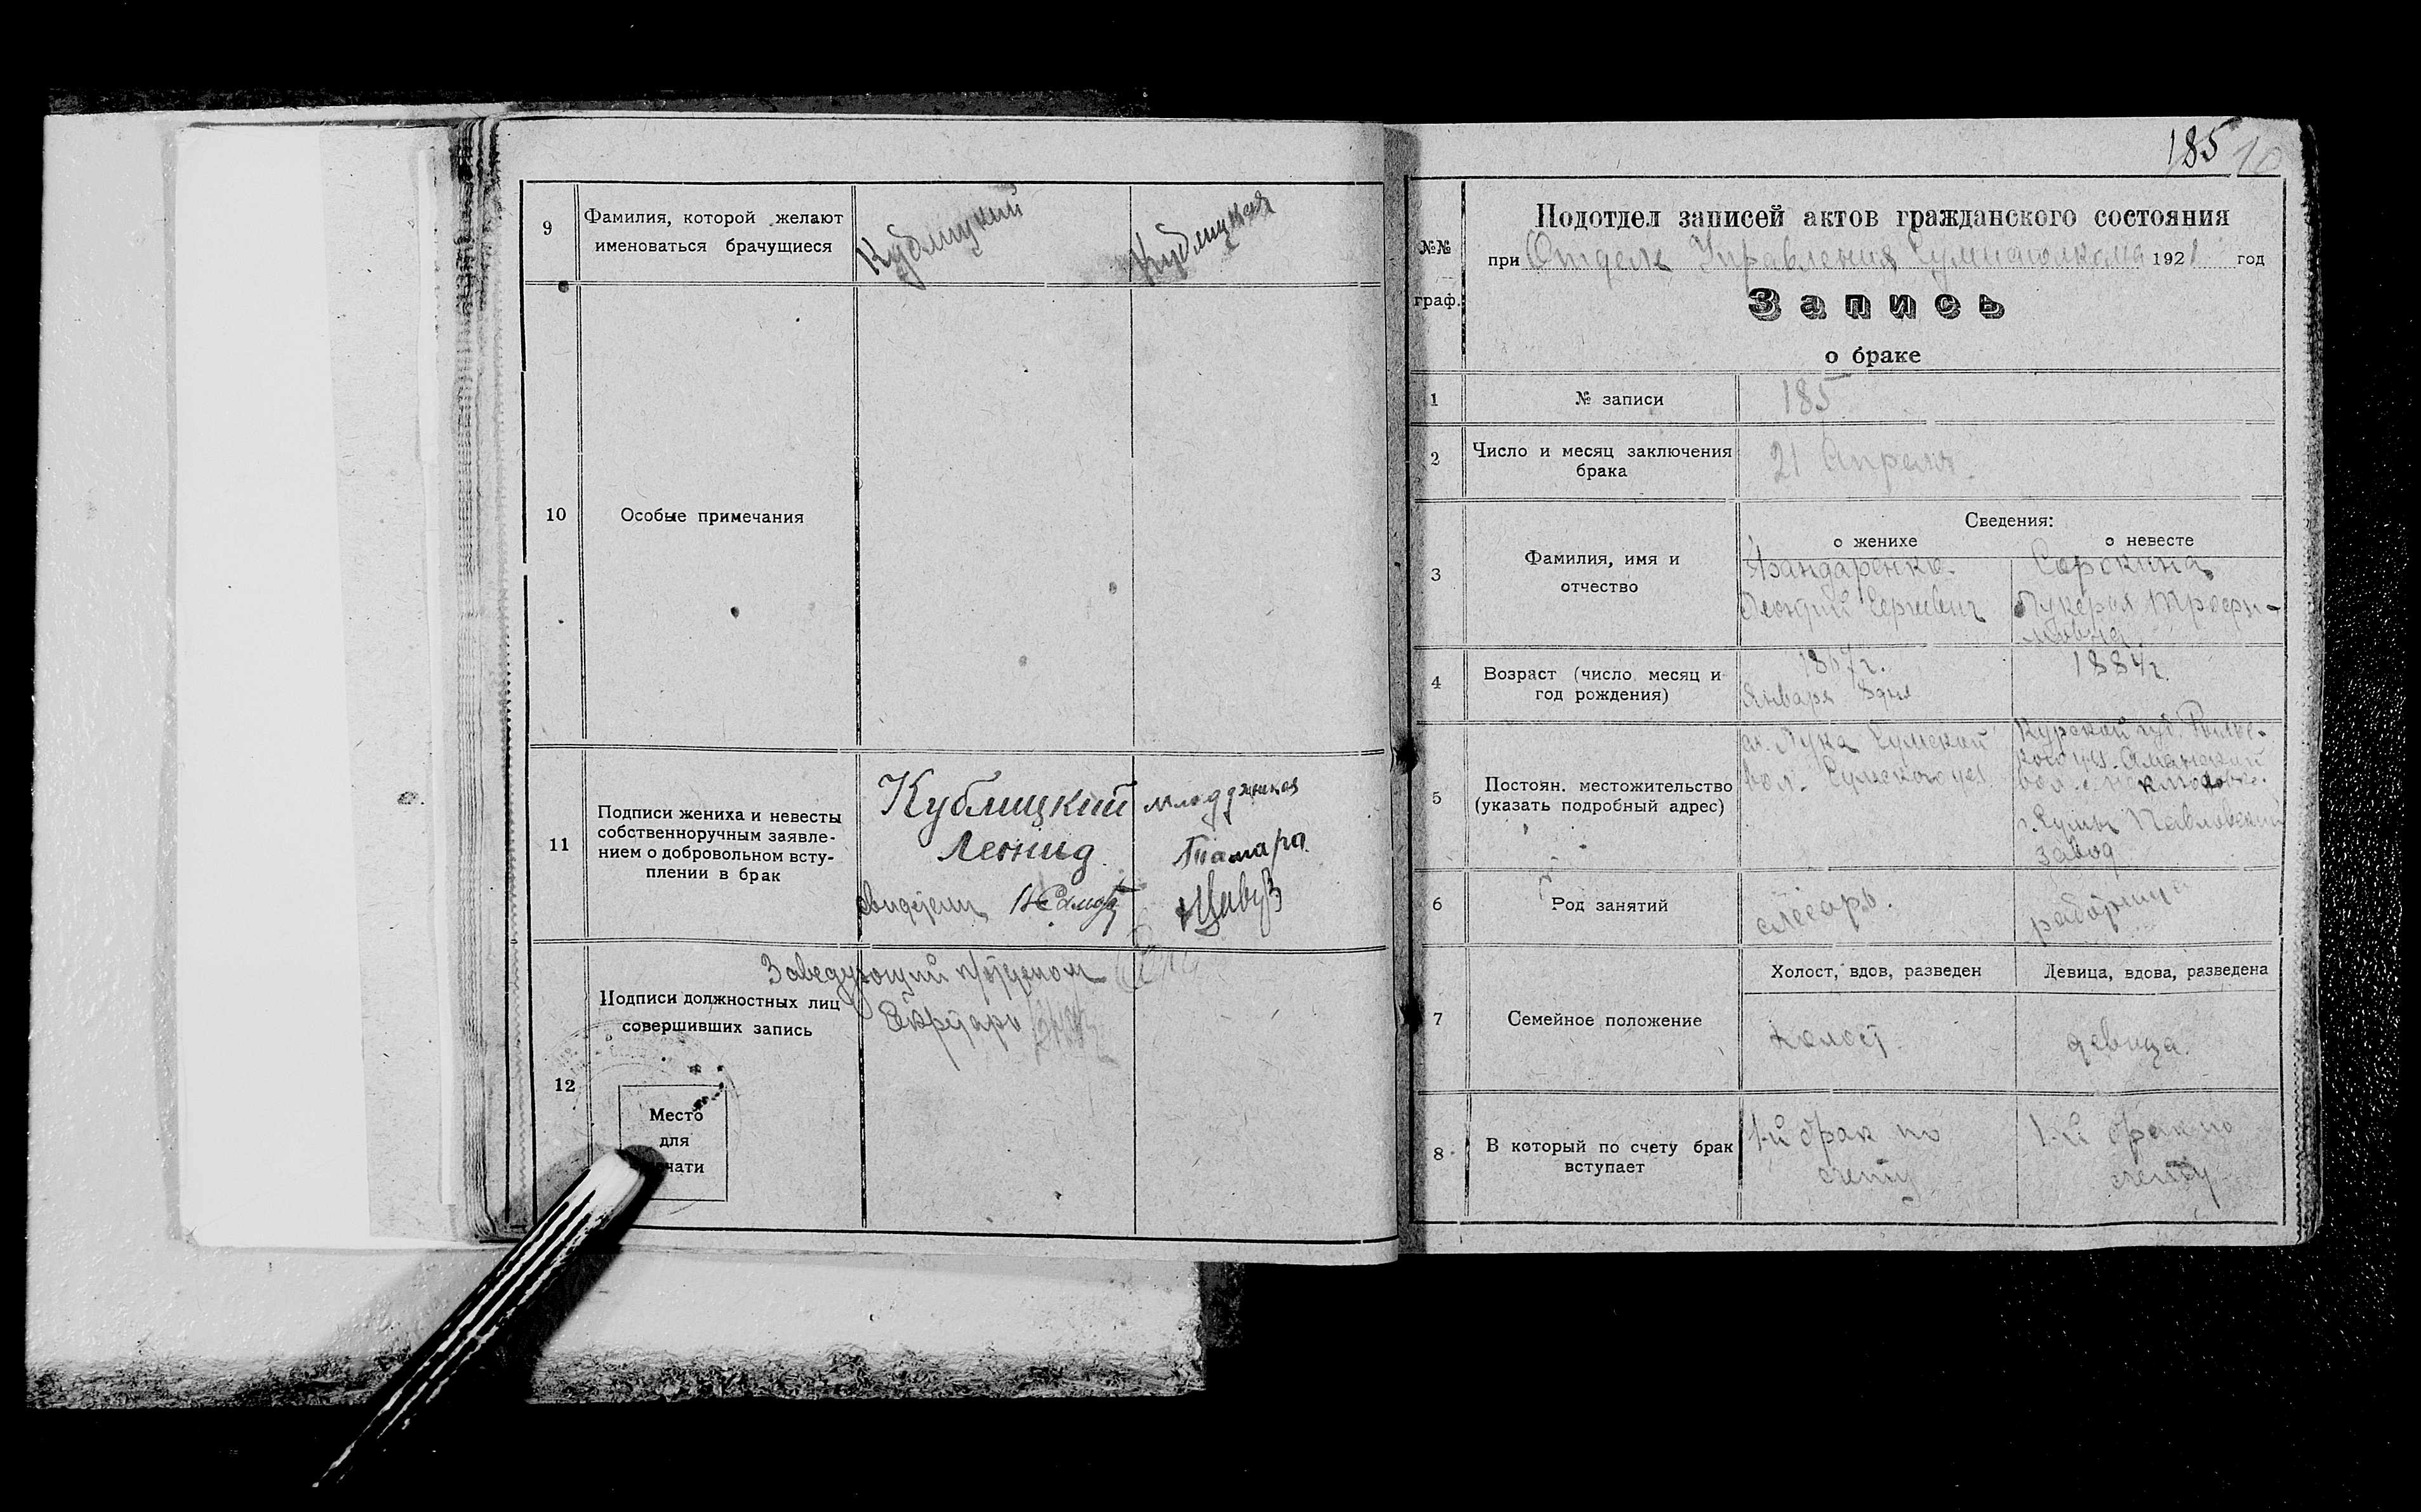 9
Фамилия, которой желают
именоваться брачущиеся
Кублицкий
Кублицкая
10
Особые примечания
11
Подписи жениха и невесты
собственноручным заявле-
нием о добровольном всту-
плении в брак
Кублицкий
Леонид
свидетели
Тамара
12
Заведующий п/отделом
Подписи должностных лиц
совершивших запись
Секретарь
Место
для
чати
185
10
№№
граф.
Подотдел записей актов гражданского состояния
при Отделе Управления Сумисполкома 1921 год
Запись
о браке
1
№ записи
185
2
Число и месяц заключения
брака
21 Апреля
3
Фамилия, имя и
отчество
Сведения:
о женихе
о невесте
Сергеевич
Сорокина
Лукерья Трофи-
мовна
4
Возраст (число месяц и
год рождения)
1867г.
Января 8 дня
1884г.
5
Постоян. местожительство
(указать подробный адрес)
Лука Сумской
вол. Сумского уез
Курской губ. Рыль-
ского уез.
вол. с.
г. Сумы Павловский
завод
6
Род занятий
слесарь.
работница
7
Семейное положение
Холост, вдов, разведен
Девица, вдова, разведена
холост.
девица.
8
В который по счету брак
вступает
1-й брак по
счету
1-й брак по
счету